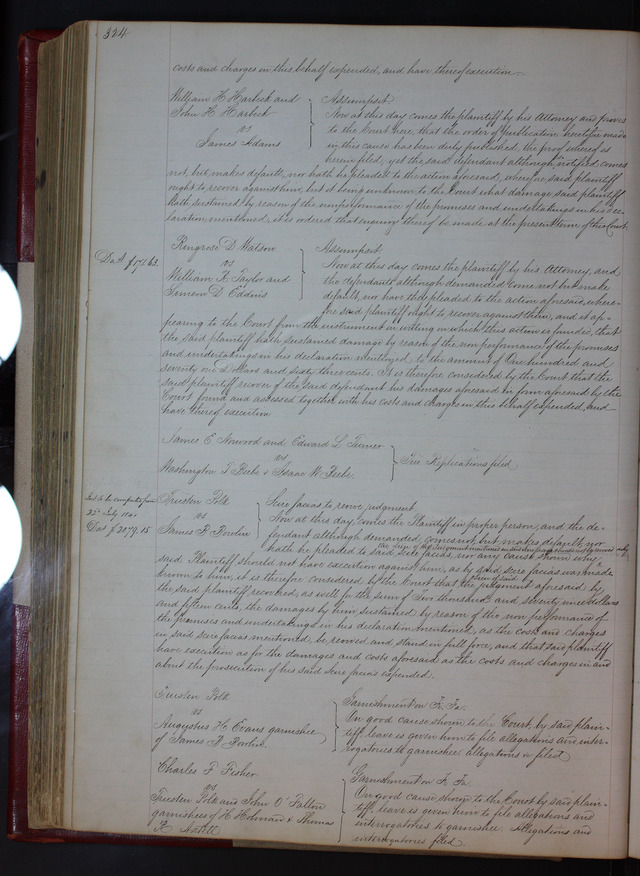 324
costs and charges in this behalf expended, and have thereof execution.
William H Harbeck and
John H Harbeck
vs
James Adams
Assumpsit
Now at this day comes the plaintiff by his Attorney and proves
to the Court here, that the order of publication heretofore made
in this cause has been duly published, the proof whereof is
herein filed, yet the said defendant although notified, comes
not, but makes default, nor hath he pleaded to the action aforesaid, wherefore, said plaintiff
ought to recover against him, but it being unknown to the Court what damage said plaintiff
hath sustained by reason of the nonperformance of the promises and undertakings in his dec-
laration mentioned, it is ordered that enquiry thereof be made at the present term of this Court.
Das $171.63.
Ringrose D Watson
vs
William H Taylor and
Simeon D Eddins
Assumpsit
Now at this day comes the plaintiff by his Attorney, and
the defendants although demanded come not but make
default, nor have they pleaded to the action aforesaid, where-
fore said plaintiff ought to recover against them, and it ap-
pearing to the Court from the instrument in writing on which this action is founded, that
the said plaintiff hath sustained damage by reason of the non performance of the promises
and undertakings in his declaration mentioned, to the amount of One hundred and
seventy one Dollars and sixty three cents. It is therefore considered by the Court that the
said plaintiff recover of the said defendant his damages aforesaid in form aforesaid by the
Court found and assessed together with his costs and charges in this behalf expended, and
have thereof execution
James E Norwood and Edward L Turner
vs
Washington T Beebe & Isaac W Beebe
Two Replications filed
Int to be computed from
22d July 1841
Das $2079.15
Trusten Polk
vs
James B Bowlin
Scire facias to revive judgment
Now at this day, comes the Plaintiff in proper person, and the de-
fendant although demanded, comes not, but makes default, nor
hath he pleaded to said scire facias, nor any cause shown why
the lien of the judgment mentioned in said scire facias should not be revived and why
said Plaintiff should not have execution against him, as by said scire facias was made
known to him, it is therefore considered by the Court that the judgment aforesaid by
the said plaintiff recovered, as well for the sum of Two thousand and seventy nine dollars
and fifteen cents, the damages by him sustained by reason of the non performance of
the promises and undertakings in his declaration mentioned, as the costs and charges
in said scire facias mentioned, be revived and stand in full force, and that said plaintiff
have execution as for the damages and costs aforesaid as the costs and charges in and
about the prosecution of his said scire facias expended.
Trusten Polk
vs
Augustus H Evans garnishee
of James B Bowlin.
Garnishment on Fi. Fa.
On good cause shown to the Court, by said plain-
tiff leave is given him to file allegations and inter-
rogatories to garnishee allegations &c filed
Charles F Fisher
vs
Trusten Polk and John O'Fallon
garnishees of H Holman & Thomas
Garnishment on Fi. Fa
On good cause shown to the Court by said plain-
tiff leave is given him to file allegations and
interrogatories to garnishee. Allegations and
interrogatories filed.